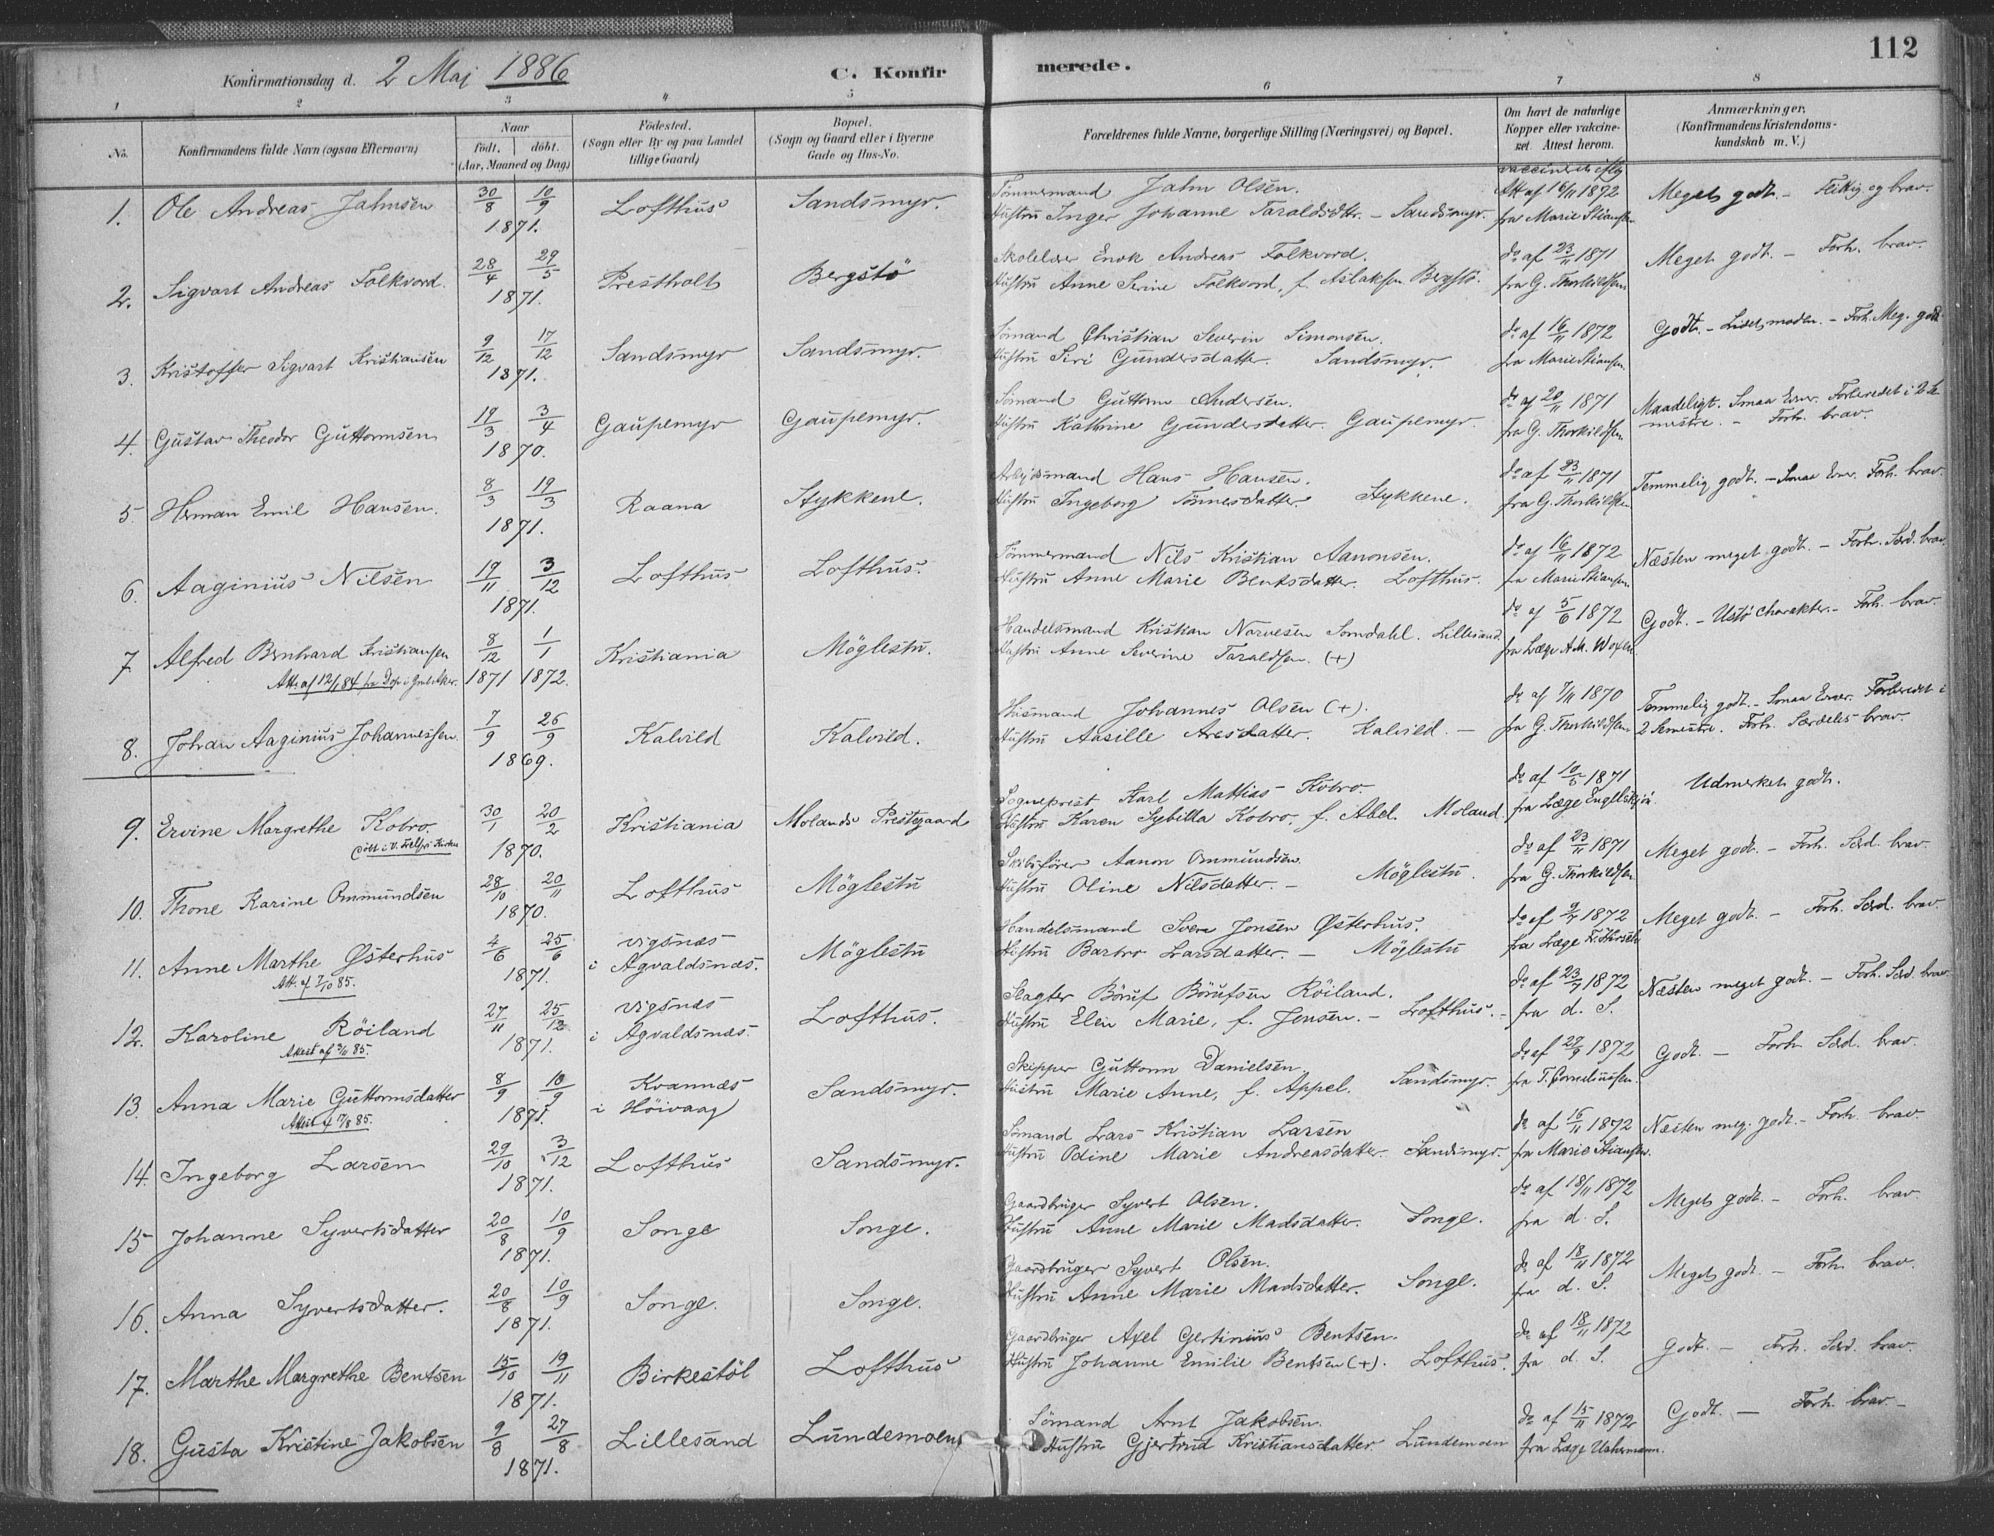 112
Konfirmationsdag d. 2 Maj 1886
C. Konfirmerede.
1 2 3 4 5 6 7 8
No.
Konfirmandens fulde Navn (ogsaa Efternavn)
Naar født. døbt. (Aar, Maaned og Dag)
Fødested. (Sogn eller By og paa Landet tillige Gaard)
Bopæl. (Sogn og Gaard eller i Byerne Gade og Hus-No.
Forældrenes fulde Navne, borgerlige Stilling (Næringsvei) og Bopæl.
Om havt de naturlige Kopper eller vaccineret. Attest herom.
Anmærkninger. (Konfirmandens Kristendomskundskab m. V.)
1. Ole Andreas Jahnsen 30/8 10/9 1871. Lofthus Sandsmyr. Tømmermand Jahn Olsen. vaccineret iflg
Hustru Inger Johanne Taraldsdtr. – Sandsmyr. Att af 16/11 1872 fra Marie Stiansen Meget godt. – Flittig og brav.
2. Sigvart Andreas Folkvord. 28/4 29/5 1871. Prestholt Bergstø Skolelærer Enok Andreas Folkvord.
Hustru Anne Serine Folkvord, f. Aslaksen Bergstø. do af 23/11 1871 fra G. Thorkildsen Meget godt. – Forh. brav.
3. Kristoffer Sigvart Kristiansen 9/12 17/12 1871. Sandsmyr Sandsmyr. Sømand Christian Severin Simonsen.
Hustru Siri Gundersdatter. Sandsmyr. do af 16/11 1872 fra Marie Stiansen Godt. – – Forh. Meg. godt
4. Gustav Theodor Guttormsen 19/3 3/4 1870. Gaupemyr Gaupemyr. Sømand Guttorm Andersen.
Hustru Kathrine Gundersdatter. Gaupemyr. do af 20/11 1871 fra G. Thorkildsen Maadeligt. Smaa Evner. Forberedet i 2 Semestre. – Forh. brav.
5. Herman Emil Hansen. 8/3 19/3 1871. Raana Stykkene. Arbejdsmand Hans Hansen.
Hustru Ingeborg Tønnesdatter. Stykkene. do af 23/11 1871 fra G. Thorkildsen Temmelig godt. – Smaa Evner. Forh. brav.
6. Aaginius Nilsen 19/11 3/12 1871. Lofthus Lofthus. Tømmermand Nils Kristian Aanonsen.
Hustru Anne Marie Bentsdatter. Lofthus. do af 16/11 1872 fra Marie Stiansen Næsten meget godt. – Forh. Særd. brav
7. Alfred Bernhard Kristiansen 8/12 1/1 1871 1872. Kristiania Møglestu. Handelsmand Kristian Narvesen Somdahl. Lillesand.
Att. af 12/1 84 fra Hustru Anne Severine Taraldsen. (+) do af 5/6 1872 fra Læge A.M. Godt. – Ustø Charakter. – Forh. brav.
8. Johan Aaginius Johannessen. 7/9 26/9 1869. Kalvild Kalvild. Husmand Johannes Olsen (+).
Hustru Aasille Aresdatter. Kalvild. – do af 7/11 1870 fra G. Thorkildsen Temmelig godt. – Smaa Evner. Forberedet i 2 Semestre. Forh. Særdeles brav.
9. Ervine Margrethe Kobro. 30/1 20/2 1870. Kristiania Molands Prestegaard Sogneprest Karl Mathias Kobro.
døbt i V. Frelsers Kirken Hustru Karen Sybilla Kobro, f. Abel. Moland. do af 10/5 1871 fra Læge Udmerket godt.
10. Thone Karine Ommundsen 28/10 20/11 1870. Lofthus Møglestu Skibsfører Aanon Ommundsen
Hustru Oline Nilsdatter. – Møglestu. do af 23/11 1871 fra G. Thorkildsen Meget godt. – Forh. Særd. brav.
11. Anne Marthe Østerhus 4/6 25/6 1871. vigsnæs i Agvaldsnæs. Møglestu Handelsmand Svere Jonsen Østerhus.
Att. af 7/10 85. Hustru Barbro Larsdatter. – Møglestu do af 9/7 1872 fra Læge Meget godt. – Forh. Særd. brav.
12. Karoline Røiland 27/11 25/12 1871. vigsnæs i Agvaldsnæs Lofthus. Slagter Børuf Børufsen Røiland.
Attest af 3/11 85. Hustru Elen Marie, f. Jensen. – Lofthus. – do af 23/7 1872 fra d. S. Næsten meget godt. – Forh. Særd. brav
13. Anna Marie Guttormsdatter 8/9 10/9 1871. Kvannæs i Høivaag Sandsmyr. Skipper Guttorm Danielsen
Attest af 17/8 85. Hustru Marie Anne, f. Appel. Sandsmyr. do af 27/9 1872 fra T. Corneliussen. Godt. – Forh. Særd. brav.
14. Ingeborg Larsen 29/10 3/12 1871. Lofthus Sandsmyr. Sømand Lars Kristian Larsen
Hustru Odine Marie Andreasdatter. Sandsmyr. do af 16/11 1872 fra Marie Stiansen. Næsten meg. godt. – Forh. brav
15 Johanne Syvertsdatter 20/8 10/9 1871. Songe Songe. Gaardbruger Syvert Olsen.
Hustru Anne Marie Madsdatter. Songe. do af 18/11 1872 fra d. S. Meget godt. – Forh. brav.
16. Anna Syvertsdatter. 20/8 10/9 1871. Songe. Songe. Gaardbruger Syvert Olsen.
Hustru Anne Marie Madsdatter. Songe. do af 18/11 1872 fra d. S. Meget godt. – Forh. brav.
17. Marthe Margrethe Bentsen 15/10 19/11 1871. Birkestøl Lofthus Gaardbruger Axel Gertinius Bentsen.
Hustru Johanne Emilie Bentsen (+). Lofthus. do af 18/11 1872 fra d. S. Godt. – Forh. Særd. brav.
18. Gusta Kristine Jakobsen 9/8 27/8 1871. Lillesand Lundemoen Sømand Arnt Jakobsen.
Hustru Gjertrud Kristiansdatter Lundemoen do af 15/11 1872 fra Læge Godt. – Forh. brav –